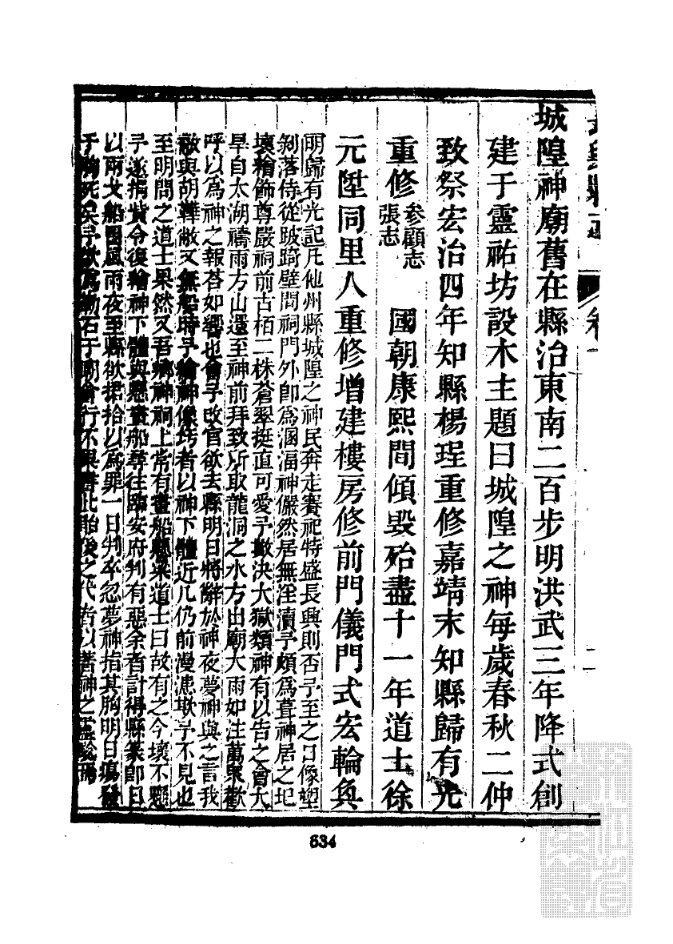 長興縣志 卷十 二
城隍神廟舊在縣治東南二百步明洪武三年降式創
建于靈祐坊設木主題曰城隍之神每歲春秋二仲
致祭宏治四年知縣楊珵重修嘉靖末知縣歸有光
重修參顧志張志 國朝康熙間傾毀殆盡十一年道士徐
元陞同里人重修增建樓房修前門儀門式宏輪奐
明歸有光記凡他州縣城隍之神民奔走賽祀特盛長興則否予至之日像塑
剝落侍從跛踦壁間祠門外即為溷湢神儼然居無淫瀆予頗為葺神居之圮
壞繪飾尊嚴祠前古栢二株蒼翠挺直可愛予每決大獄類神有以告之會大
旱自太湖禱雨方山還至神前拜致所取龍洞之水方出廟大雨如注萬衆歡
呼以為神之報荅如響也會予改官欲去縣明日將辭於神夜夢神與之言我
敝與胡 敝又無船時予繪神像圬者以神下體近几仍前漫漶欺予不見也
至明問之道士果然又吾鄉神祠上常有畫船懸梁道士曰故有之今壞不懸
予遂捐貲令復繪神下體與懸畫船尋往臨安府判有惡余者計得縣篆即日
以兩戈船圍風雨夜至縣欲捃拾以為罪一日判卒忽夢神指其胸明日瘍發
于胸死矣予欲為勒石于 會行不果書此貽後之代者以著神之靈驗焉
634